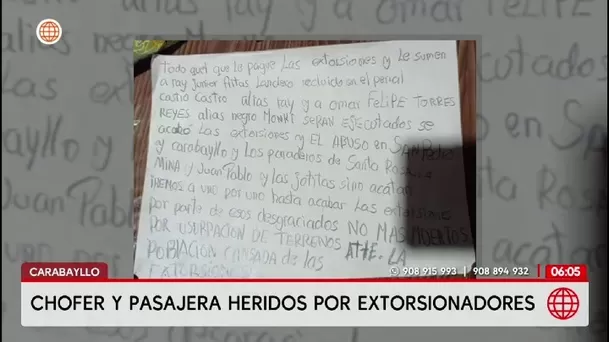 Todo quel que lo pague Las extorsiones y Le sumen
a ray junior Fritas Landero recluido en el penal
castro castro alias ray y a omar FELIPE TORRES
REYES alias negro MOWHI SERAN EJECUTADOS se
acabó Las extorsiones y EL ABUSO en SAN Pedro
y carabayllo y Los paraderos de Santa Rosa
MINA y Juan Pablo y las jotitas sino acatan
IREMOS a uno por uno hasta acabar Las extorsione
por parte de esos desgraciados NO MAS MUERTOS
POR USURPACION DE TERRENOS ATTE. LA
POBLACION CANSADA de las
EXTORSIONES
CARABAYLLO
908 915 993 | 908 894 932
06:05
CHOFER Y PASAJERA HERIDOS POR EXTORSIONADORES